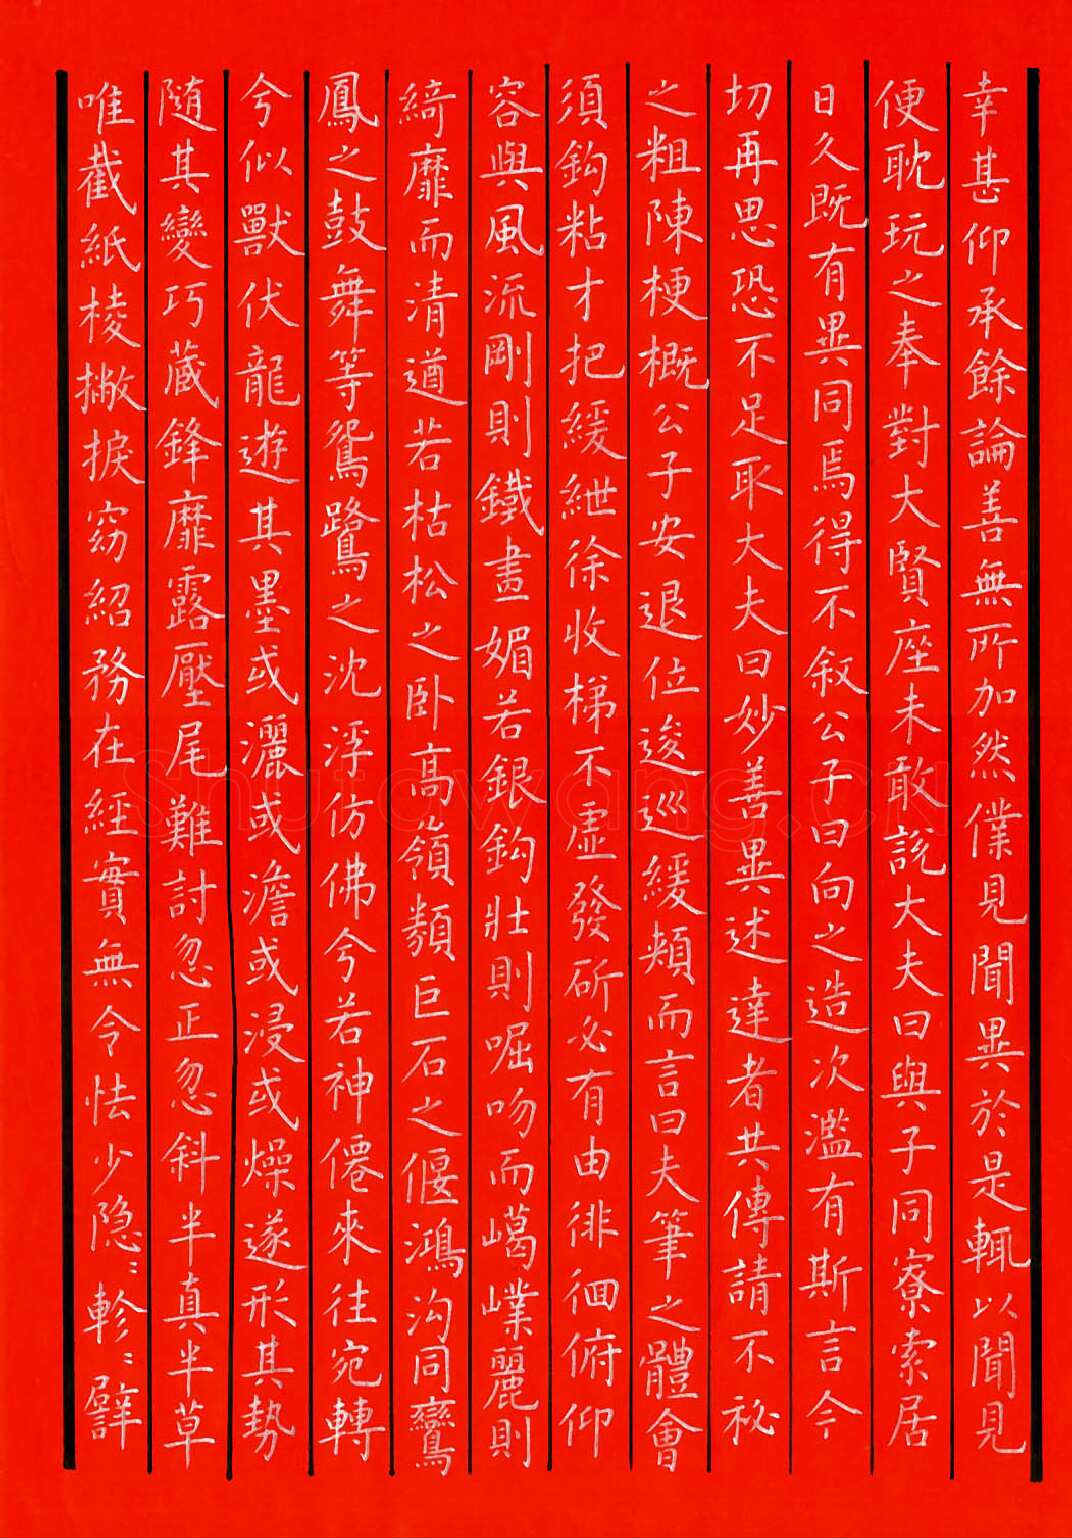 幸甚仰承餘論善無所加然僕見聞異於是輒以聞見
便耽玩之奉對大賢座未敢說大夫曰與子同寮索居
日久既有異同焉得不叙公子曰向之造次濫有斯言今
切再思恐不足取大夫曰妙善異述達者共傳請不祕
之粗陳梗概公子安退位逡巡緩頰而言曰夫筆之體會
須鈎粘才把緩紲徐收梯不虛發斫必有由徘徊俯仰
容與風流剛則鐵畫媚若銀鈎壯則啒吻而嶱嶫麗則
綺靡而清遒若枯松之卧高嶺類巨石之偃鴻沟同鸞
鳳之鼓舞等鴛鷺之沈浮仿佛兮若神僊來往宛轉
兮似獸伏龍遊其墨或灑或澹或浸或燥遂形其勢
随其變巧藏鋒靡露壓尾難討忽正忽斜半真半草
唯截紙棱撇捩窈紹務在經實無令怯少隐〻軫〻譬
Shufawang.CN